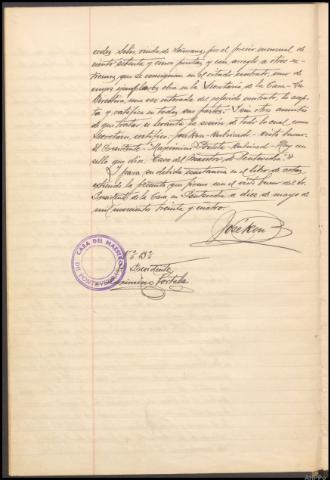 viuda de por el precio mensual de
ciento setenta y cinco pesetas y con arreglo a otros ex-
tremos que se consignan en el citado contrato, uno de
cuyos ejemplares obra en la Secretaría de la Casa. La
Directiva, una vez enterada del referido contrato, lo acep-
ta y ratifica en todas sus partes. Y sin otros asuntos
de que tratar se levanta la sesión de todo lo cual, como
Secretario, certifico, José Ron. Rubricado. Visto bueno.
El Presidente: Maximino Portela. Rubricado. Hay un
sello que dice: Casa del Maestro de Pontevedra."
Y para su debida constancia en el libro de actas,
extiendo la presente que firmo con el visto bueno del Sr.
Presidente de la Casa en Pontevedra a diez de mayo de
mil novecientos treinta y cuatro.
José Ron
Vº Bº
Presidente
Maximino Portela
CASA DEL MAESTRO
DE PONTEVEDRA